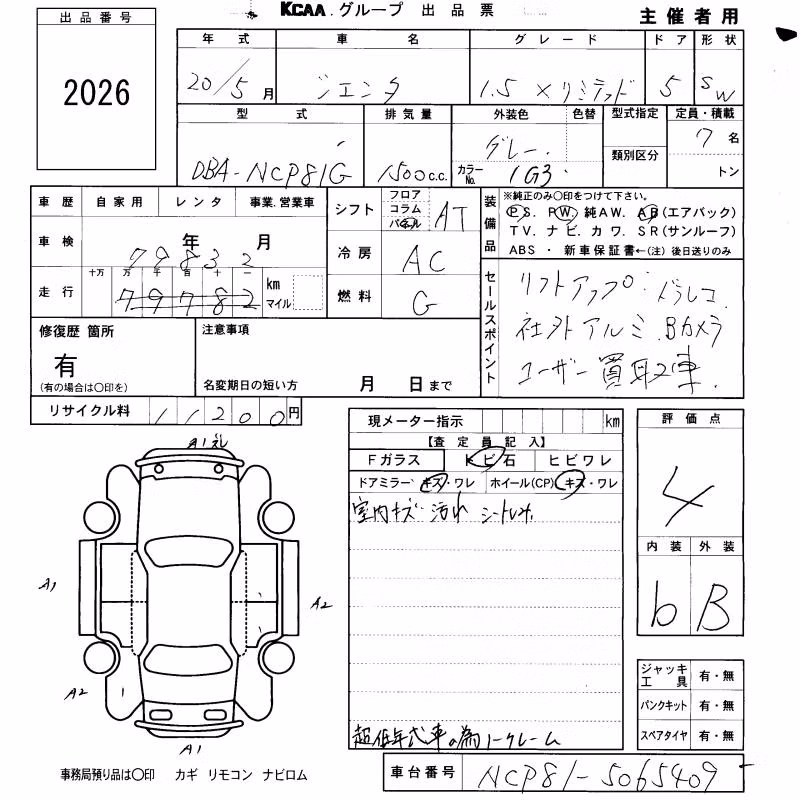 KCAA.グループ 出品票
主催者用
出品番号
2026
年式 車名 グレード ドア 形状
20/5月 シエンタ 1.5 Xリミテッド 5 SW
型式 排気量 外装色 色替 型式指定 定員・積載
DBA-NCP81G 1500c.c. グレー カラーNo. 1G3 類別区分 7名
トン
車歴 自家用 レンタ 事業.営業車
シフト フロア コラム パネル AT
装備品 ※純正のみ○印をつけて下さい。
PS. PW. 純AW. AB(エアバック)
TV. ナビ. カワ. SR(サンルーフ)
ABS ・ 新車保証書←(注) 後日送りのみ
車検 年 月
79832
冷房 AC
走行 十万 万 千 百 十 一 km マイル
79782
燃料 G
セールスポイント
リフトアップ ドラレコ
社外アルミ Bカメラ
ユーザー買取車
修復歴 箇所
有
(有の場合は○印を)
注意事項
名変期日の短い方 月 日まで
リサイクル料 11200円
現メーター指示 km
【査定員記入】
Fガラス トビ石 ヒビワレ
ドアミラー キズ・ワレ ホイール(CP) キズ・ワレ
室内キズ 汚れ
超低年式車の為ノークレーム
評価点
4
内装 外装
b B
ジャッキ工具 有・無
パンクキット 有・無
スペアタイヤ 有・無
A1
A1
A2
A2
A1
事務局預り品は○印 カギ リモコン ナビロム
車台番号 NCP81-5065409